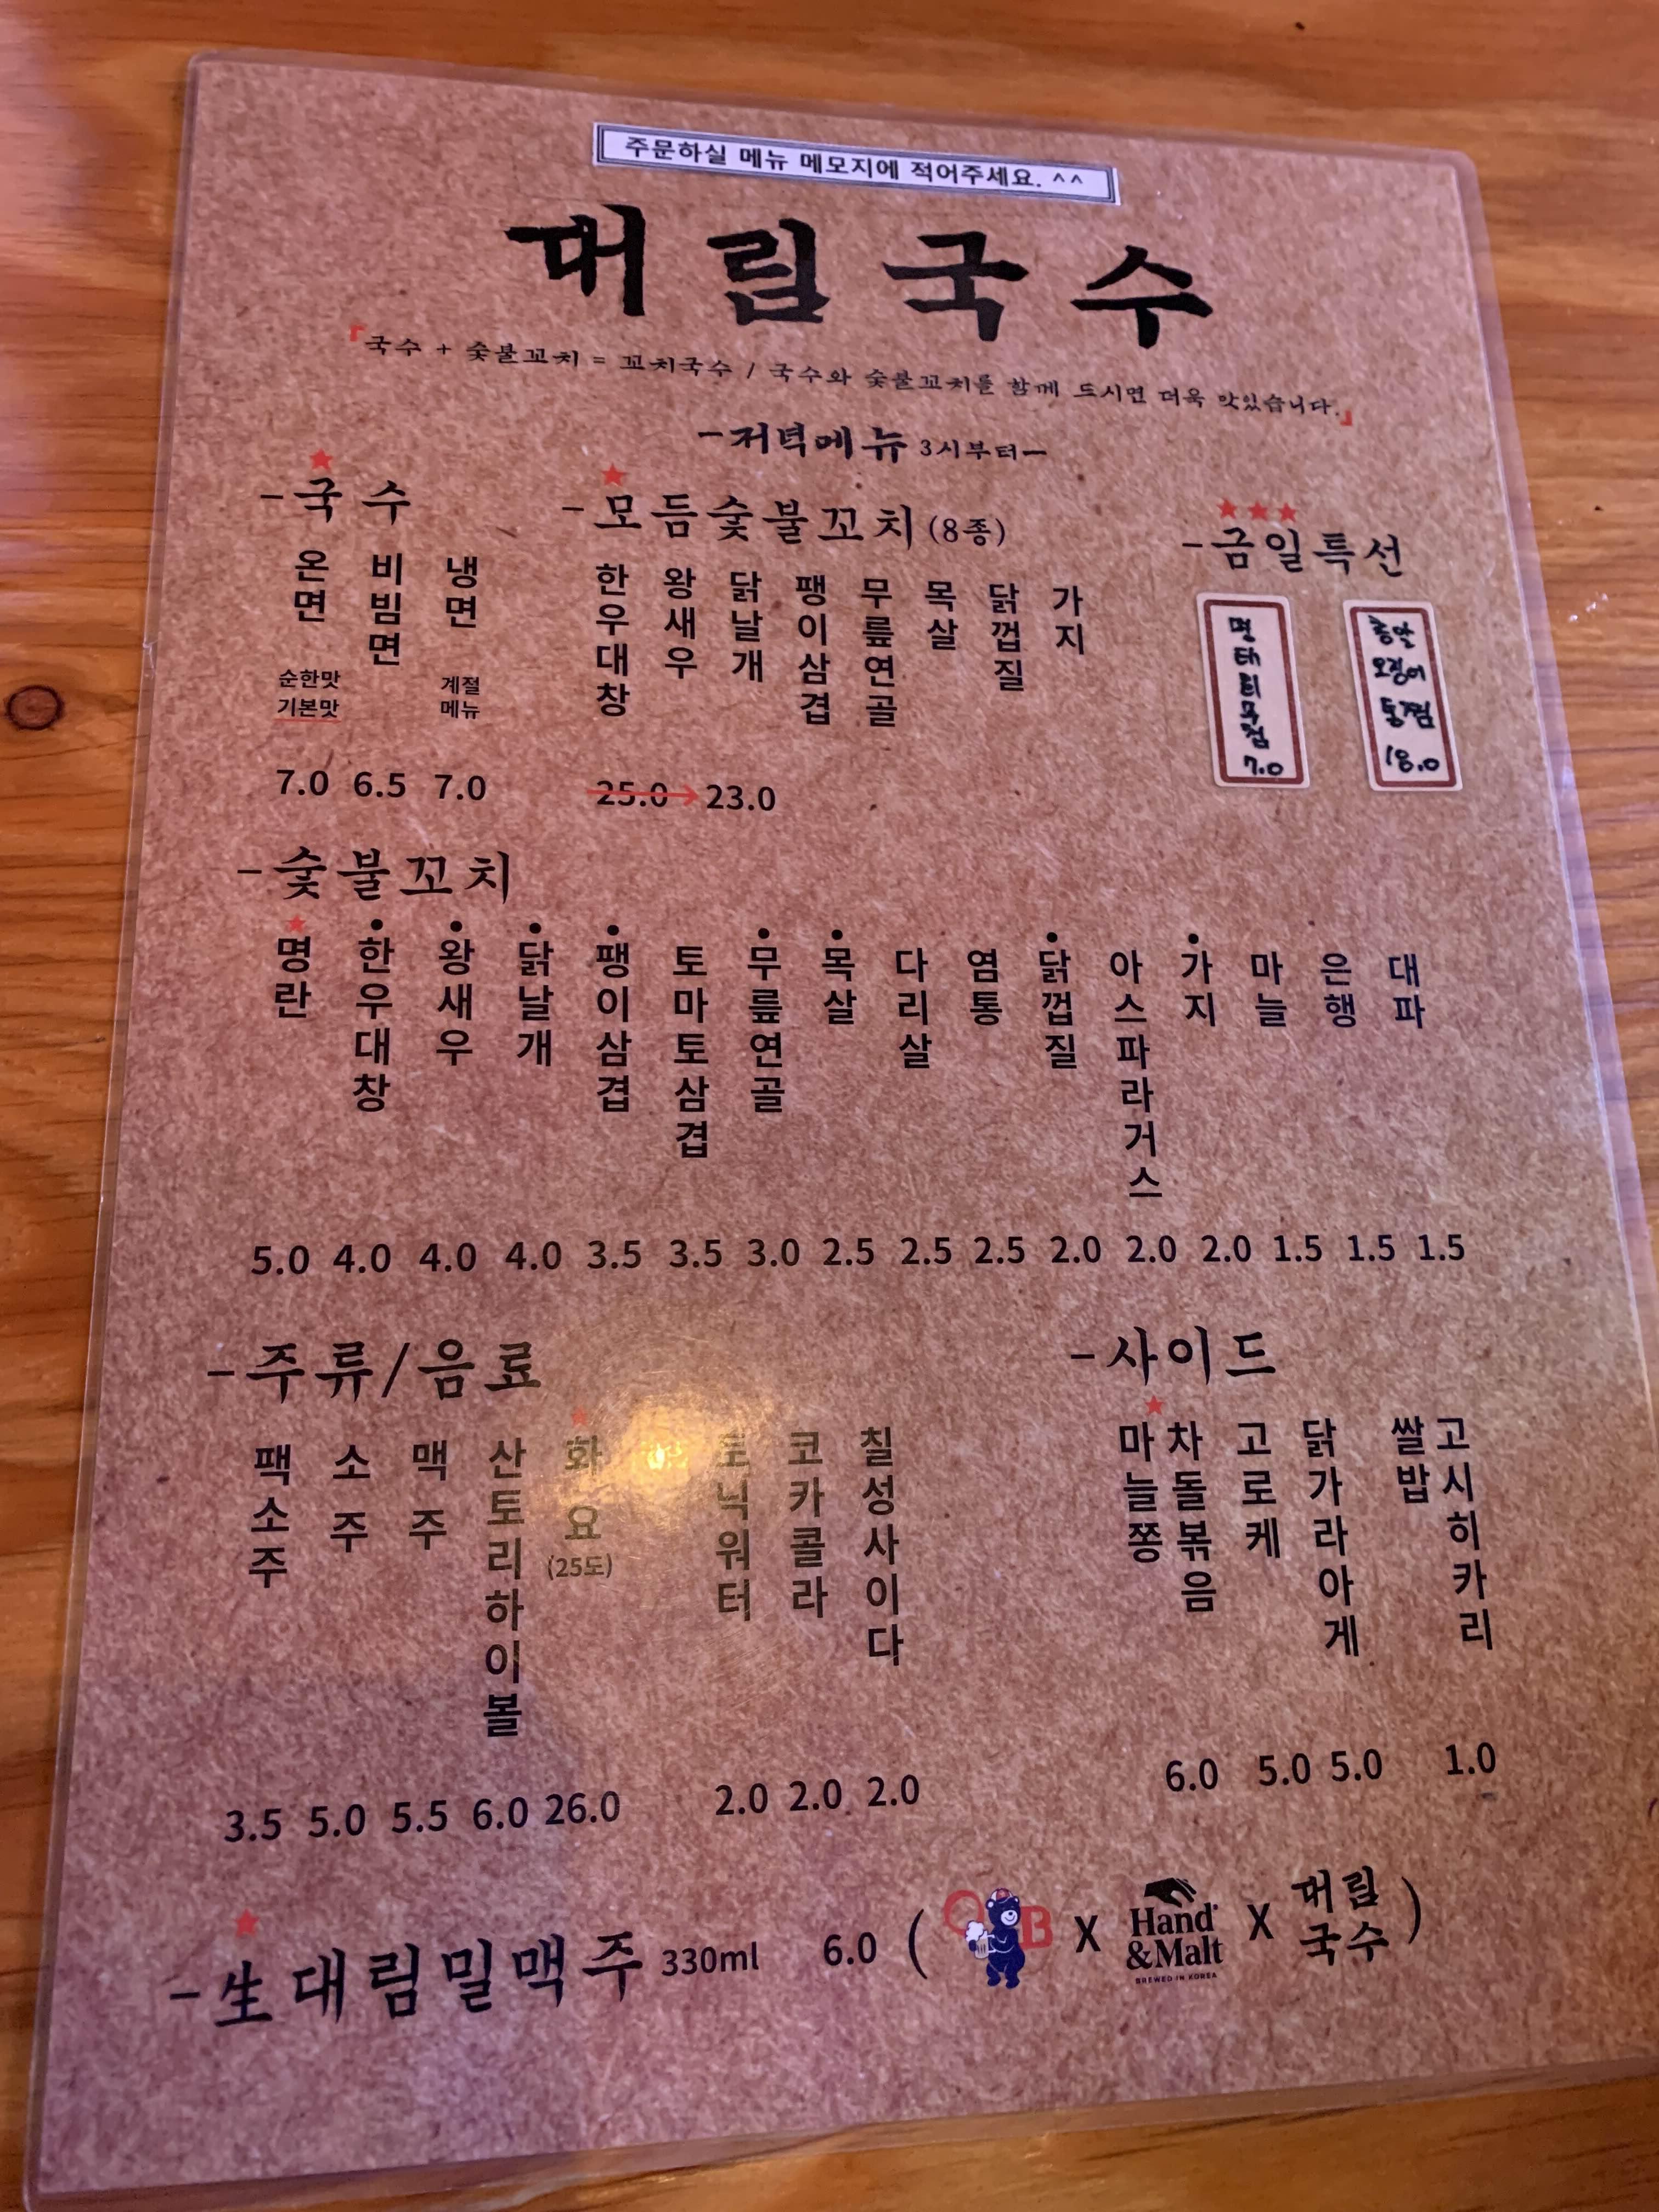 주문하실 메뉴 메모지에 적어주세요. ^^
대림국수
「국수 + 숯불꼬치 = 꼬치국수 / 국수와 숯불꼬치를 함께 드시면 더욱 맛있습니다.」
-저녁메뉴 3시부터-
-국수
온면
순한맛
기본맛
비빔면
냉면
계절
메뉴
7.0 6.5 7.0
-모듬숯불꼬치(8종)
한우대창
왕새우
닭날개
팽이삼겹
무릎연골
목살
닭껍질
가지
25.0→23.0
-금일특선
명태회무침
7.0
총알
오징어
통찜
18.0
-숯불꼬치
명란
한우대창
왕새우
닭날개
팽이삼겹
토마토삼겹
무릎연골
목살
다리살
염통
닭껍질
아스파라거스
가지
마늘
은행
대파
5.0 4.0 4.0 4.0 3.5 3.5 3.0 2.5 2.5 2.5 2.0 2.0 2.0 1.5 1.5 1.5
-주류/음료
팩소주
소주
맥주
산토리하이볼
화요
(25도)
토닉워터
코카콜라
칠성사이다
3.5 5.0 5.5 6.0 26.0 2.0 2.0 2.0
-사이드
마늘쫑
차돌볶음
고로케
닭가라아게
쌀밥
고시히카리
6.0 5.0 5.0 1.0
-生대림밀맥주 330ml 6.0 ( OB X Hand &Malt BREWED IN KOREA X 대림국수 )